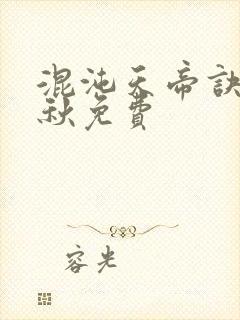 混沌天帝訣
秋免費
容光